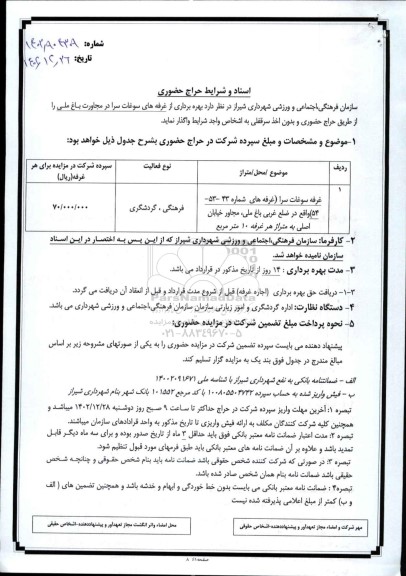 شماره: ۱۴۰۲۸۰۴۳۸
تاریخ: ۱۴۰۲/۱۲/۲۶
اسناد و شرایط حراج حضوری
سازمان فرهنگی،اجتماعی و ورزشی شهرداری شیراز در نظر دارد بهره برداری از غرفه های سوغات سرا در مجاورت باغ ملی را
از طریق حراج حضوری و بدون اخذ سرقفلی به اشخاص واجد شرایط واگذار نماید.
۱-موضوع و مشخصات و مبلغ سپرده شرکت در حراج حضوری بشرح جدول ذیل خواهد بود:
ردیف
موضوع /محل/متراژ
نوع فعالیت
سپرده شرکت در مزایده برای هر غرفه(ریال)
۱
غرفه سوغات سرا (غرفه های شماره ۴۳ -۵۳-
۵۴)واقع در ضلع غربی باغ ملی، مجاور خیابان
اصلی به متراژ هر غرفه ۱۰ متر مربع
فرهنگی ، گردشگری
۷۰/۰۰۰/۰۰۰
۲- کارفرما: سازمان فرهنگی،اجتماعی و ورزشی شهرداری شیراز که از این پس به اختصار در این اسناد
سازمان نامیده خواهد شد.
۳- مدت بهره برداری : ۱۴ روز از تاریخ مذکور در قرارداد می باشد.
۳-۱- دریافت حق بهره برداری (اجاره غرفه) قبل از شروع مدت قرارداد و قبل از انعقاد آن دریافت می گردد.
۴- دستگاه نظارت: اداره گردشگری و امور زیارتی سازمان سازمان فرهنگی،اجتماعی و ورزشی شهرداری می باشد.
۵- نحوه پرداخت مبلغ تضمین شرکت در مزایده حضوری:
ParsNamadData
۰۲۱-۸۸۳۴۹۶۷۰-۵
پیشنهاد دهنده می بایست سپرده تضمین شرکت در مزایده حضوری را به یکی از صورتهای مشروحه زیر بر اساس
مبالغ مندرج در جدول فوق بند یک به مزایده گزار تسلیم کند.
الف - ضمانتنامه بانکی به نفع شهرداری شیراز با شناسه ملی ۱۴۰۰۲۰۹۱۶۷۱
ب - فیش واریز شده به حساب سپرده ۱۰۰۸۰۵۵۰۳۷۳۳ با کد مرجع ۱۰۱۵۵۲ بانک شهر بنام شهرداری شیراز
تبصره ۱: آخرین مهلت واریز سپرده شرکت در حراج حداکثر تا ساعت ۹ صبح روز دوشنبه ۱۴۰۲/۱۲/۲۸ میباشد و
همچنین کلیه شرکت کنندگان مکلف به ارائه فیش واریزی تا تاریخ مذکور به واحد قراردادهای سازمان میباشند.
تبصره ۲: مدت اعتبار ضمانت نامه معتبر بانکی فوق باید حداقل ۳ ماه از تاریخ صدور بوده و برای سه ماه دیگر قابل
تمدید باشد و علاوه بر آن ضمانت نامه های معتبر بانکی باید طبق فرمهای مورد قبول تنظیم شود.
تبصره ۳: در صورتی که شرکت کننده شخص حقوقی باشد ضمانت نامه باید بنام شخص حقوقی و چنانچه شخص
حقیقی باشد ضمانت نامه بنام همان شخص صادر شده باشد.
تبصره۴ : ضمانت نامه معتبر بانکی می بایست بدون خط خوردگی و ابهام و خدشه باشد و همچنین تضمین های ( الف
و ب) کمتر از مبلغ اعلامی پذیرفته شده نیست
مهر شرکت و امضاء مجاز تعهدآور و پیشنهاددهنده-اشخاص حقوقی
محل امضاء واثر انگشت مجاز تعهدآور و پیشنهاددهنده-اشخاص حقیقی
صفحه۱از ۸